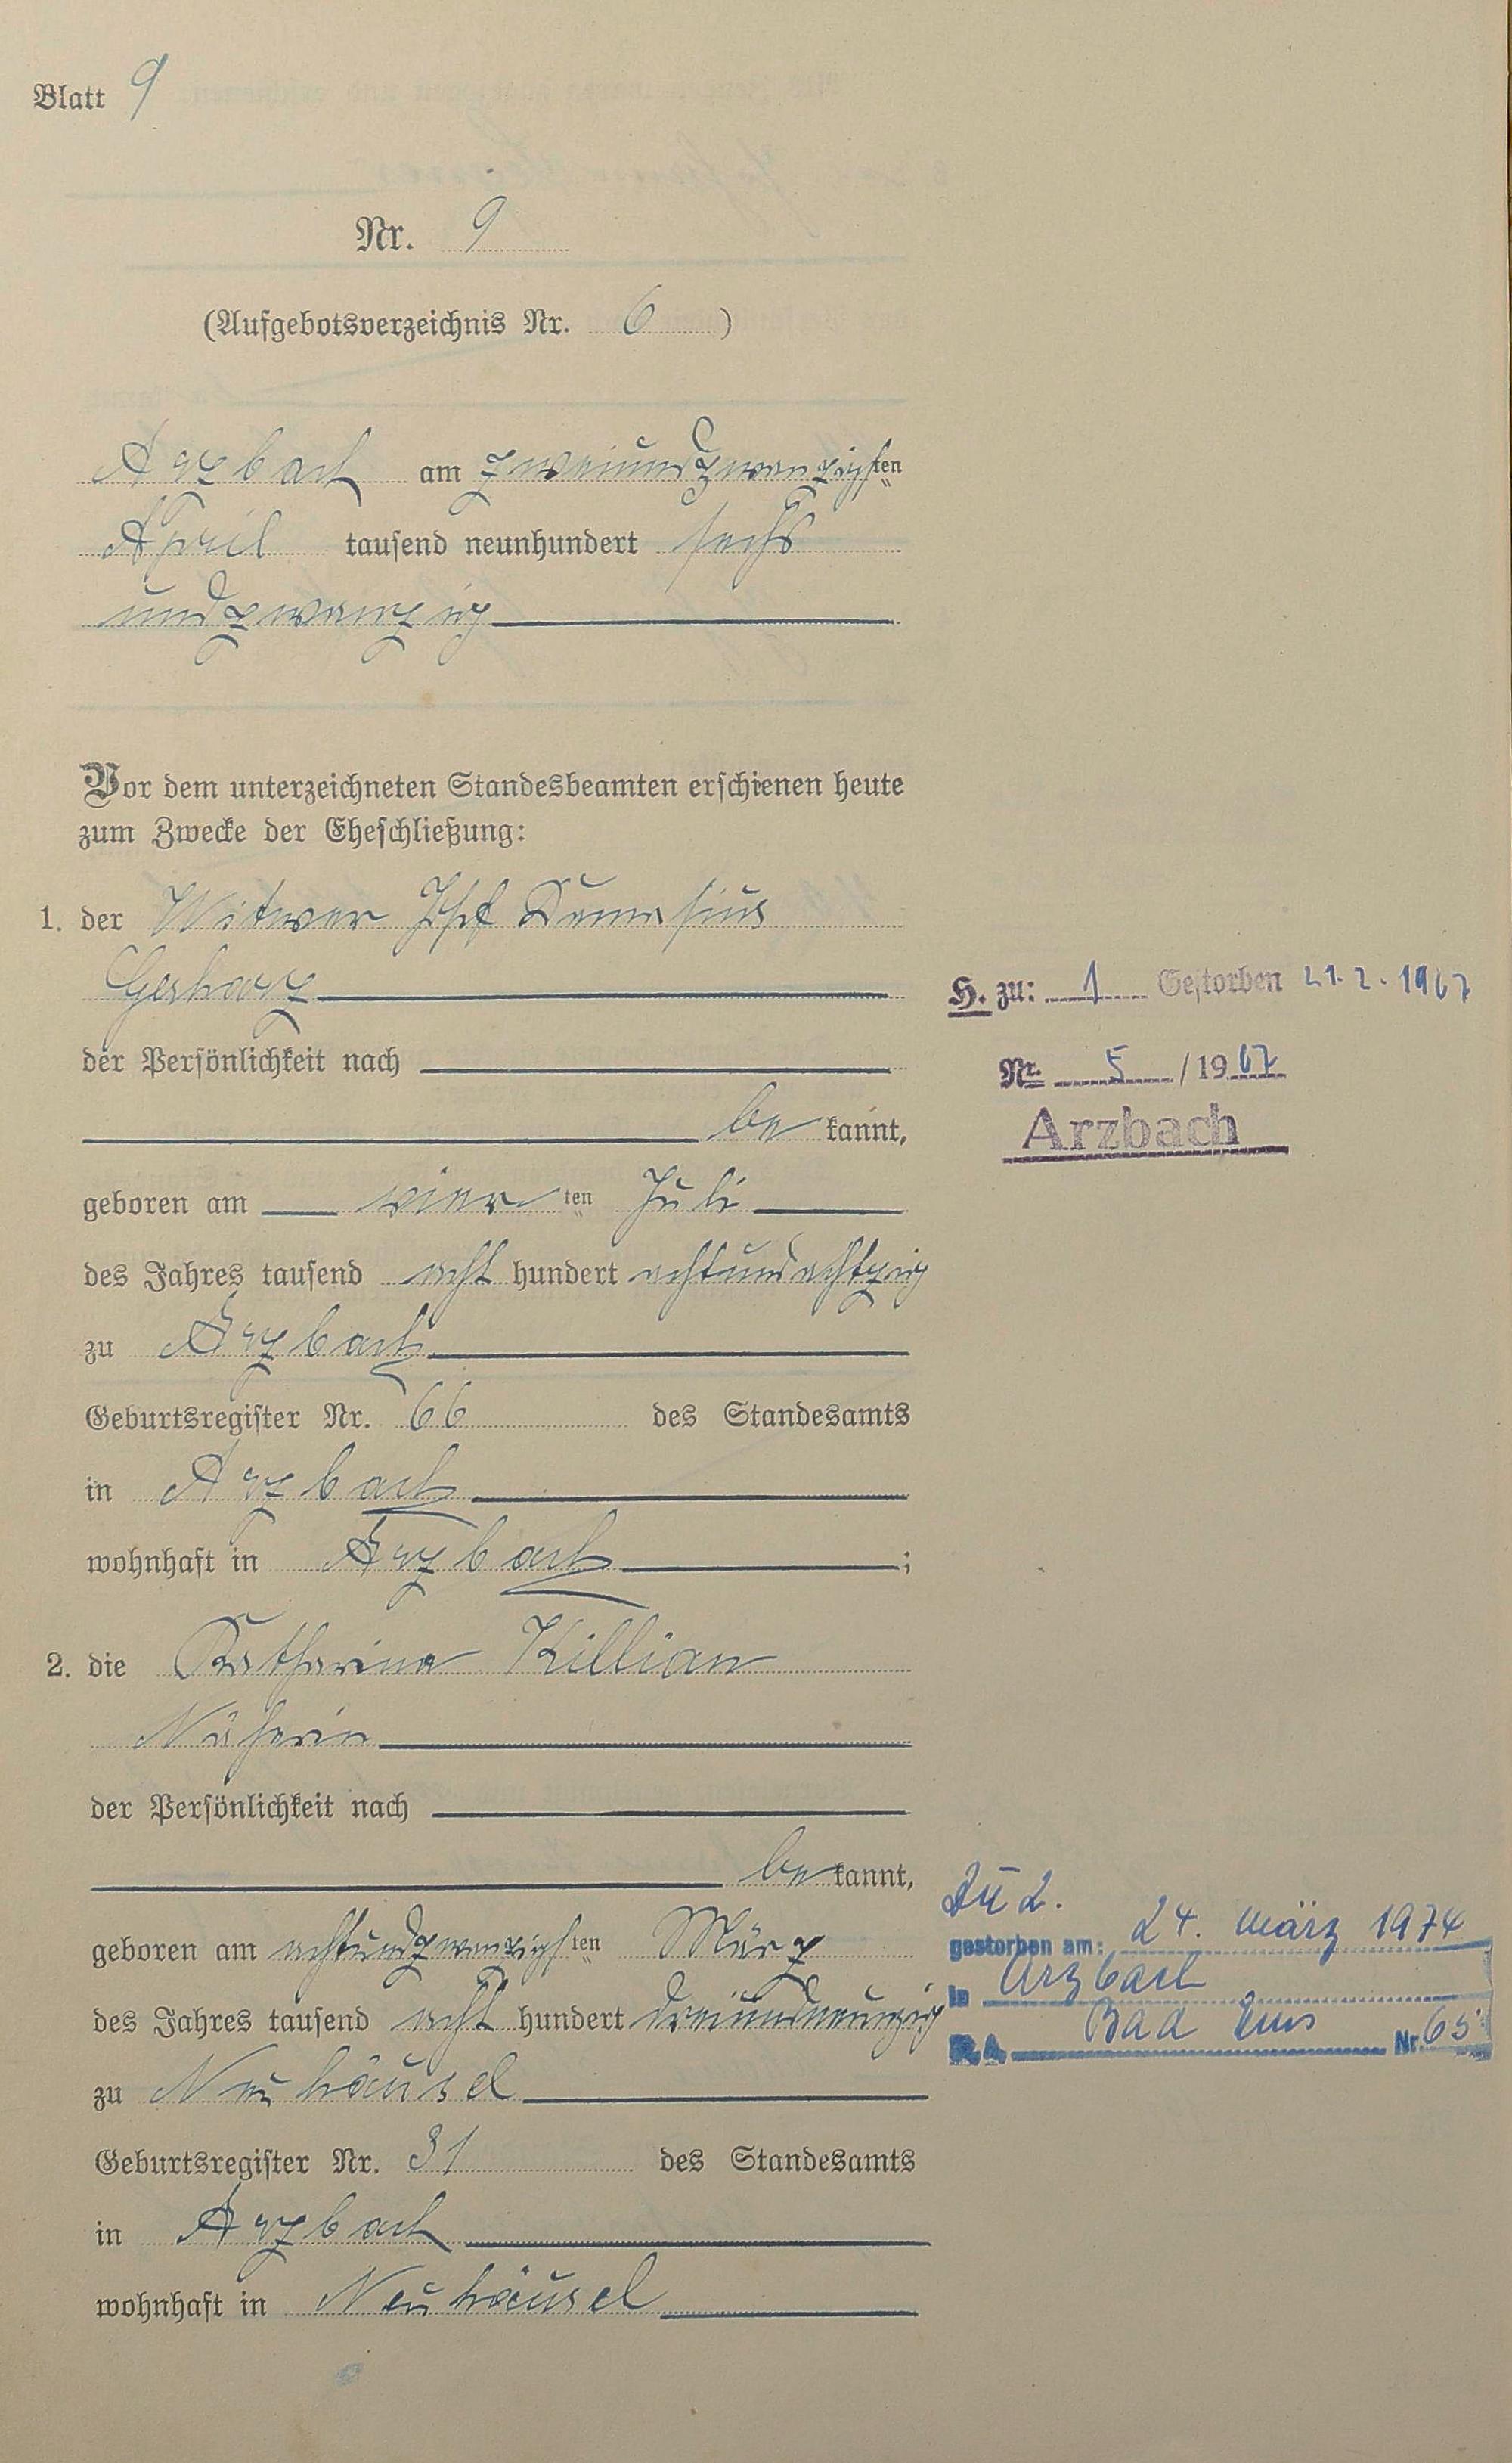 Blatt 9
Nr. 9
(Aufgebotsverzeichnis Nr. 6)
Arzbach am zweiundzwanzigsten
April tausend neunhundert sechs
undzwanzig
Vor dem unterzeichneten Standesbeamten erschienen heute
zum Zwecke der Eheschließung:
1. der Witwer
Gerharz
der Persönlichkeit nach
bekannt,
geboren am vierten Juli
des Jahres tausend acht hundert achtundachtzig
zu Arzbach
Geburtsregister Nr. 66 des Standesamts
in Arzbach
wohnhaft in Arzbach;
2. die Katharina Killian
Näherin
der Persönlichkeit nach
bekannt,
geboren am achtundzwanzigsten März
des Jahres tausend acht hundert dreiundneunzig
zu Neuhäusel
Geburtsregister Nr. 31 des Standesamts
in Arzbach
wohnhaft in Neuhäusel
H. zu: 1 Gestorben 21.2.1967
Nr. 5/1967
Arzbach
Zu 2.
gestorben am: 24. März 1974
in Arzbach
Bad Ems Nr. 65